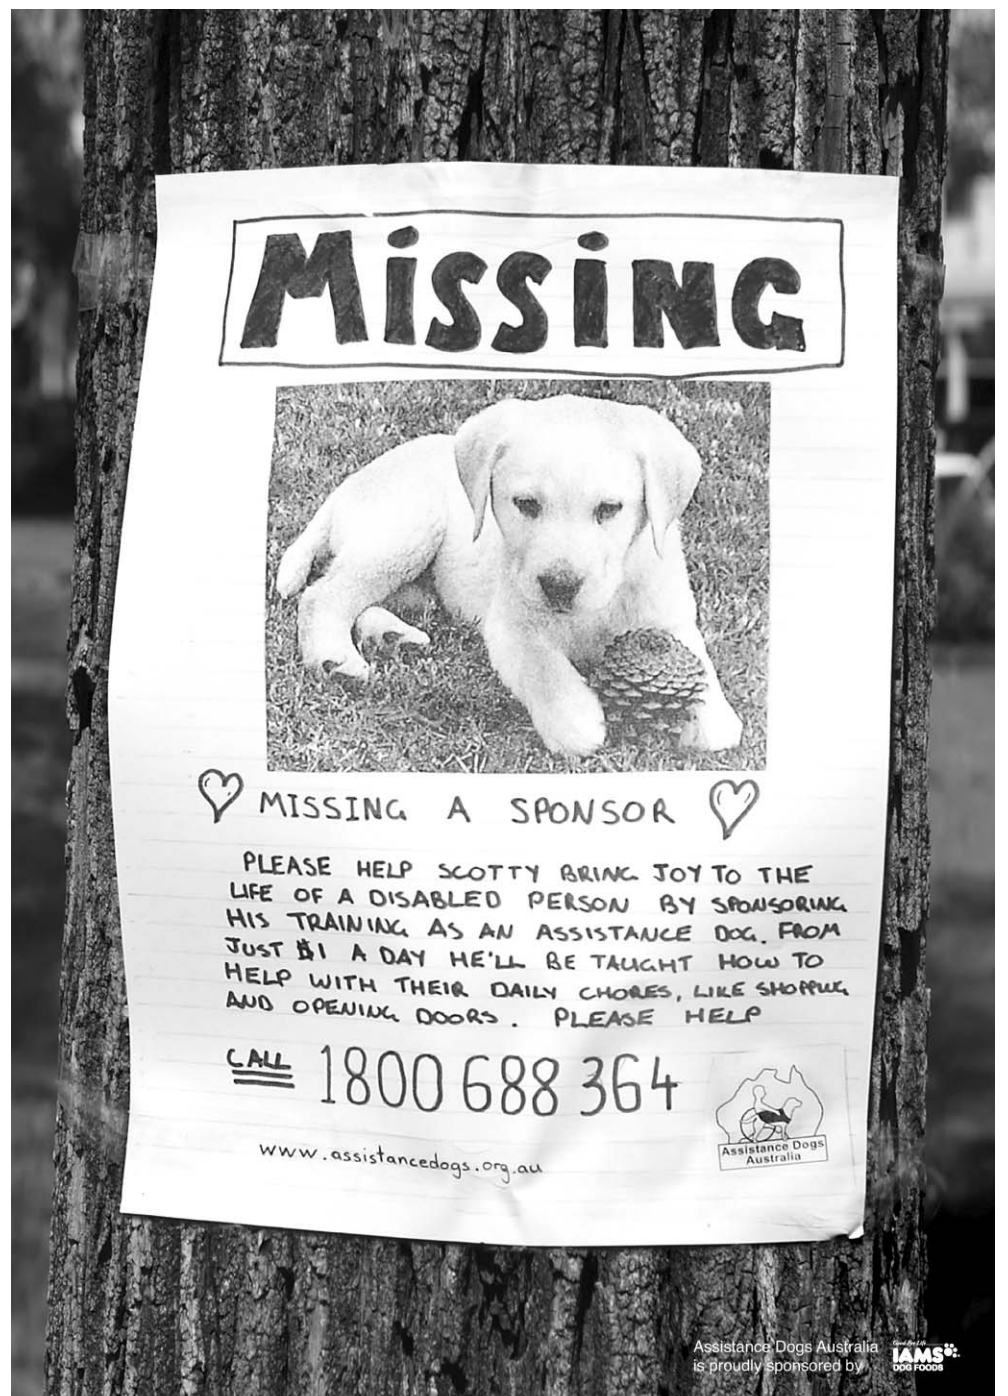 MISSING
MISSING A SPONSOR
PLEASE HELP SCOTTY BRING JOY TO THE
LIFE OF A DISABLED PERSON BY SPONSORING
HIS TRAINING AS AN ASSISTANCE DOG. FROM
JUST $1 A DAY HE'LL BE TAUGHT HOW TO
HELP WITH THEIR DAILY CHORES, LIKE SHOPPING
AND OPENING DOORS. PLEASE HELP
CALL 1800 688 364
www.assistancedogs.org.au
Assistance Dogs
Australia
Assistance Dogs Australia
is proudly sponsored by
Good For Life
IAMS
DOG FOODS